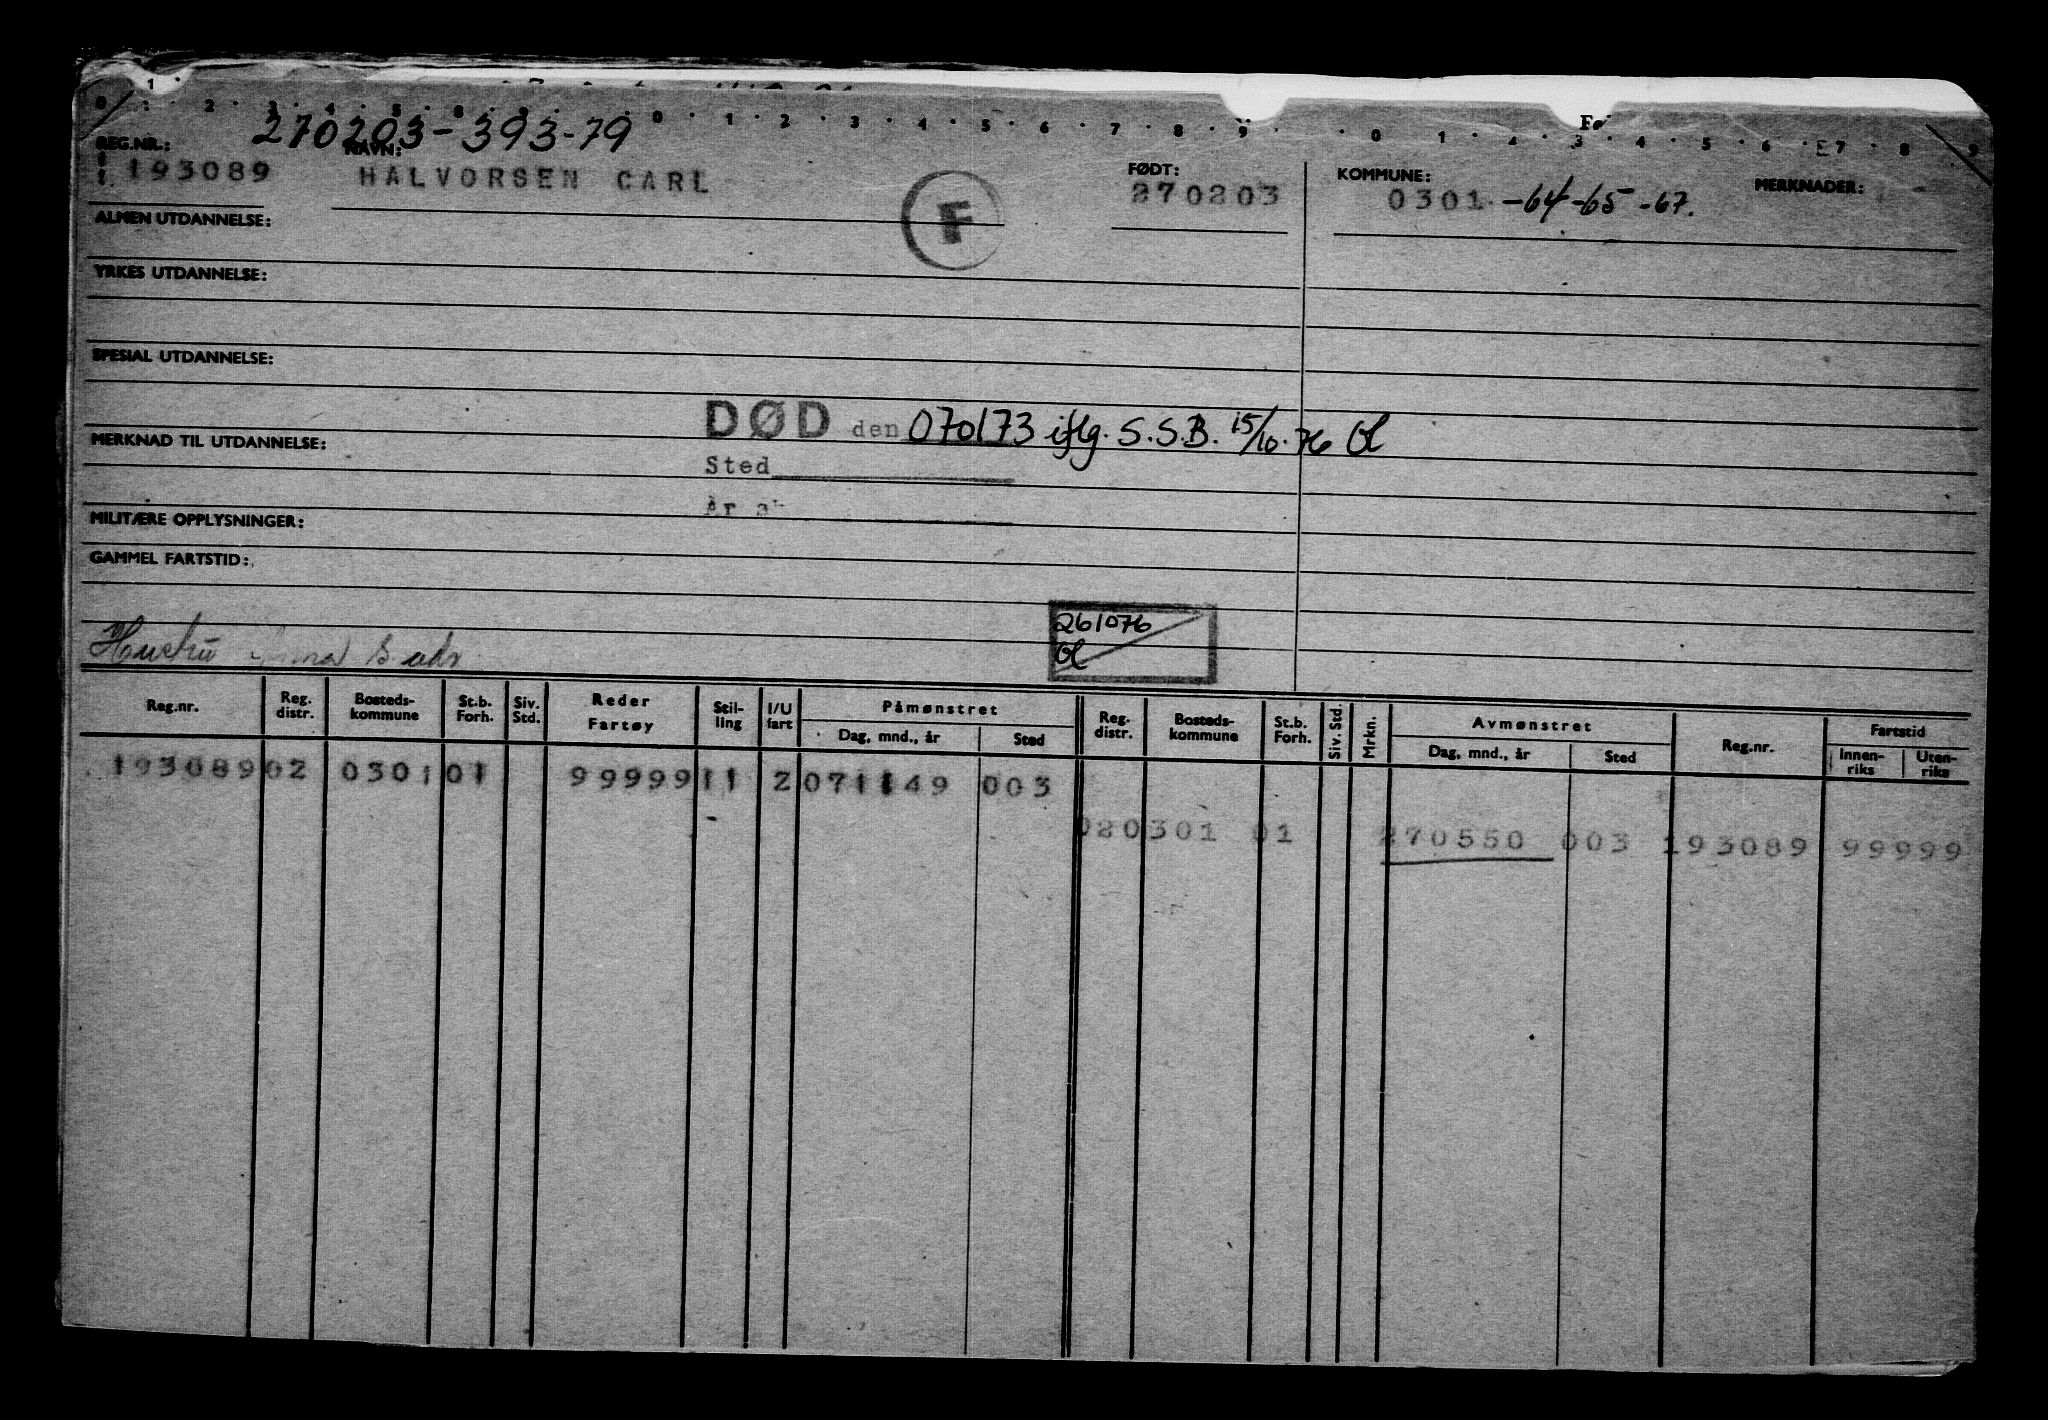 270203-393-79
REG.NR.: NAVN: FØDT: KOMMUNE: MERKNADER:
193089 HALVORSEN CARL 270203 0301 -64-65-67.
F
ALMEN UTDANNELSE:
YRKES UTDANNELSE:
SPESIAL UTDANNELSE:
DØD den 070173 iflg. S.S.B. 15/10.76
MERKNAD TIL UTDANNELSE:
Sted
År
MILITÆRE OPPLYSNINGER:
GAMMEL FARTSTID:
261076
Hustru
Reg.nr. Reg. distr. Bosteds-kommune St.b. Forh. Siv. Std. Reder Fartøy Stil-ling I/U fart Påmønstret Dag, mnd., år Sted Reg. distr. Bosteds-kommune St.b. Forh. Siv. Std. Mrkn. Avmønstret Dag, mnd., år Sted Reg.nr. Fartstid Innen-riks Uten-riks
193089 02 0301 01 99999 11 2 071149 003
020301 01 270550 003 193089 99999